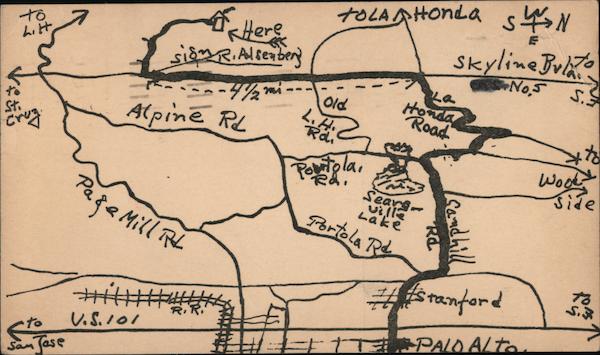 to
L.H
Here
sign R. Adsenberg
TO LA HONDA
W
S N
E
Skyline Bvld.
to
S.F.
No. 5
to
St.
Cruz
4 1/2 mi
Alpine Rd
Old
L.H.
Rd.
La
Honda
Road
Portola
Rd.
Sears-
ville
Lake
to
Wood
side
Page Mill Rd.
Portola Rd
Sandhill
Rd
R.R.
Stanford
to
U.S. 101
San Jose
to
S.F.
PALO ALTO.